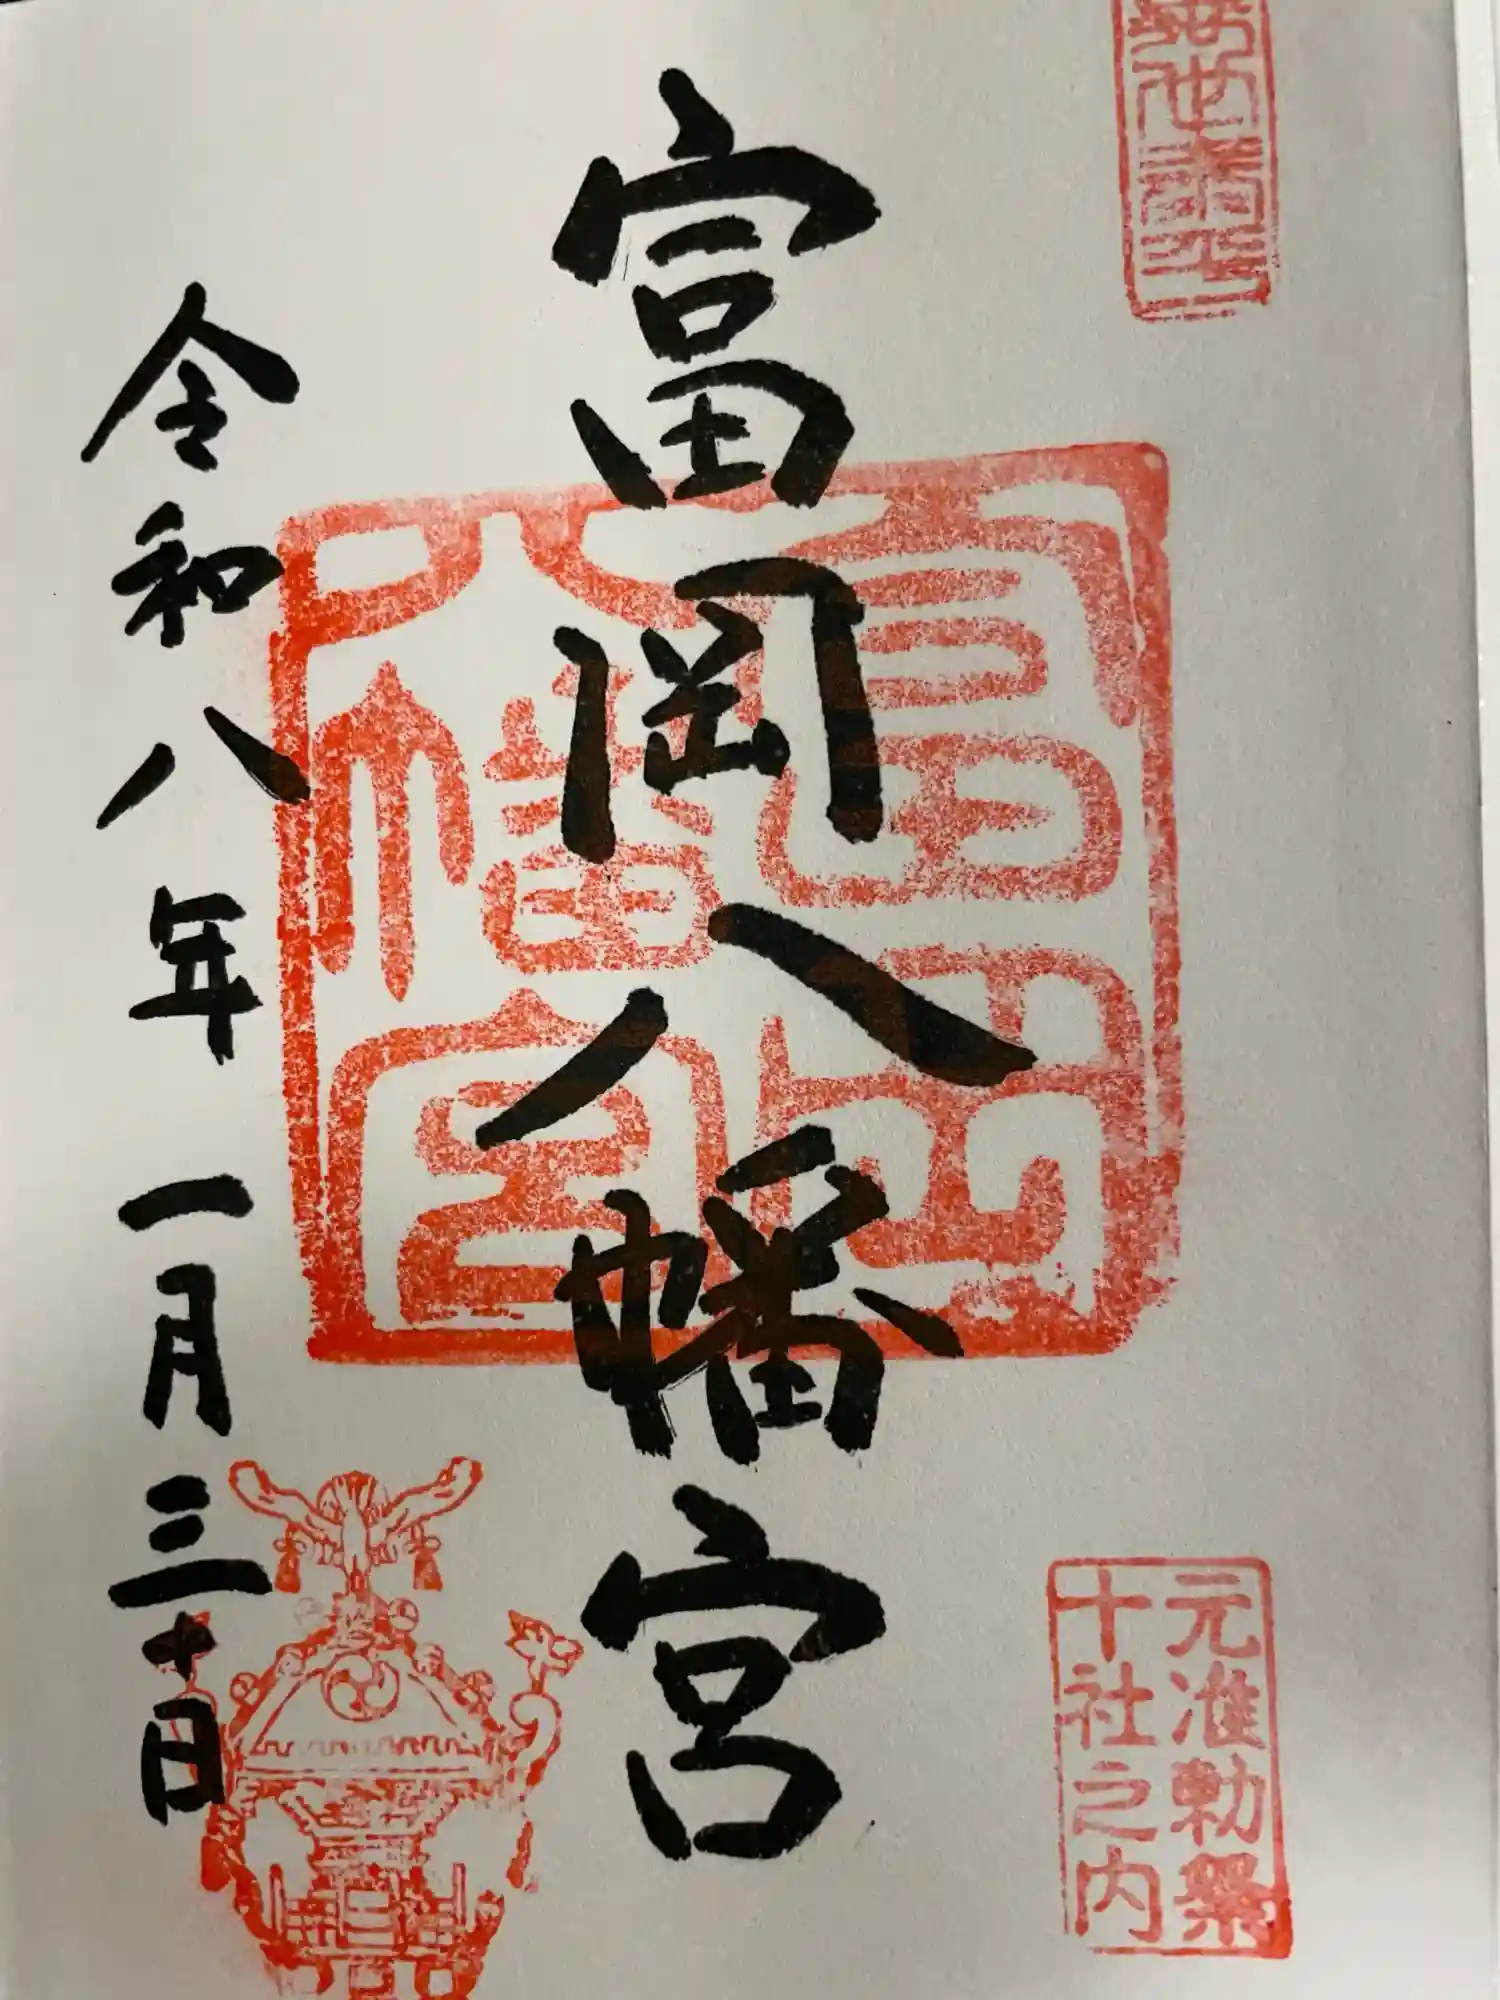 元准勅祭
十社之内
富岡八幡宮
富岡
八幡宮
令和八年一月三十日